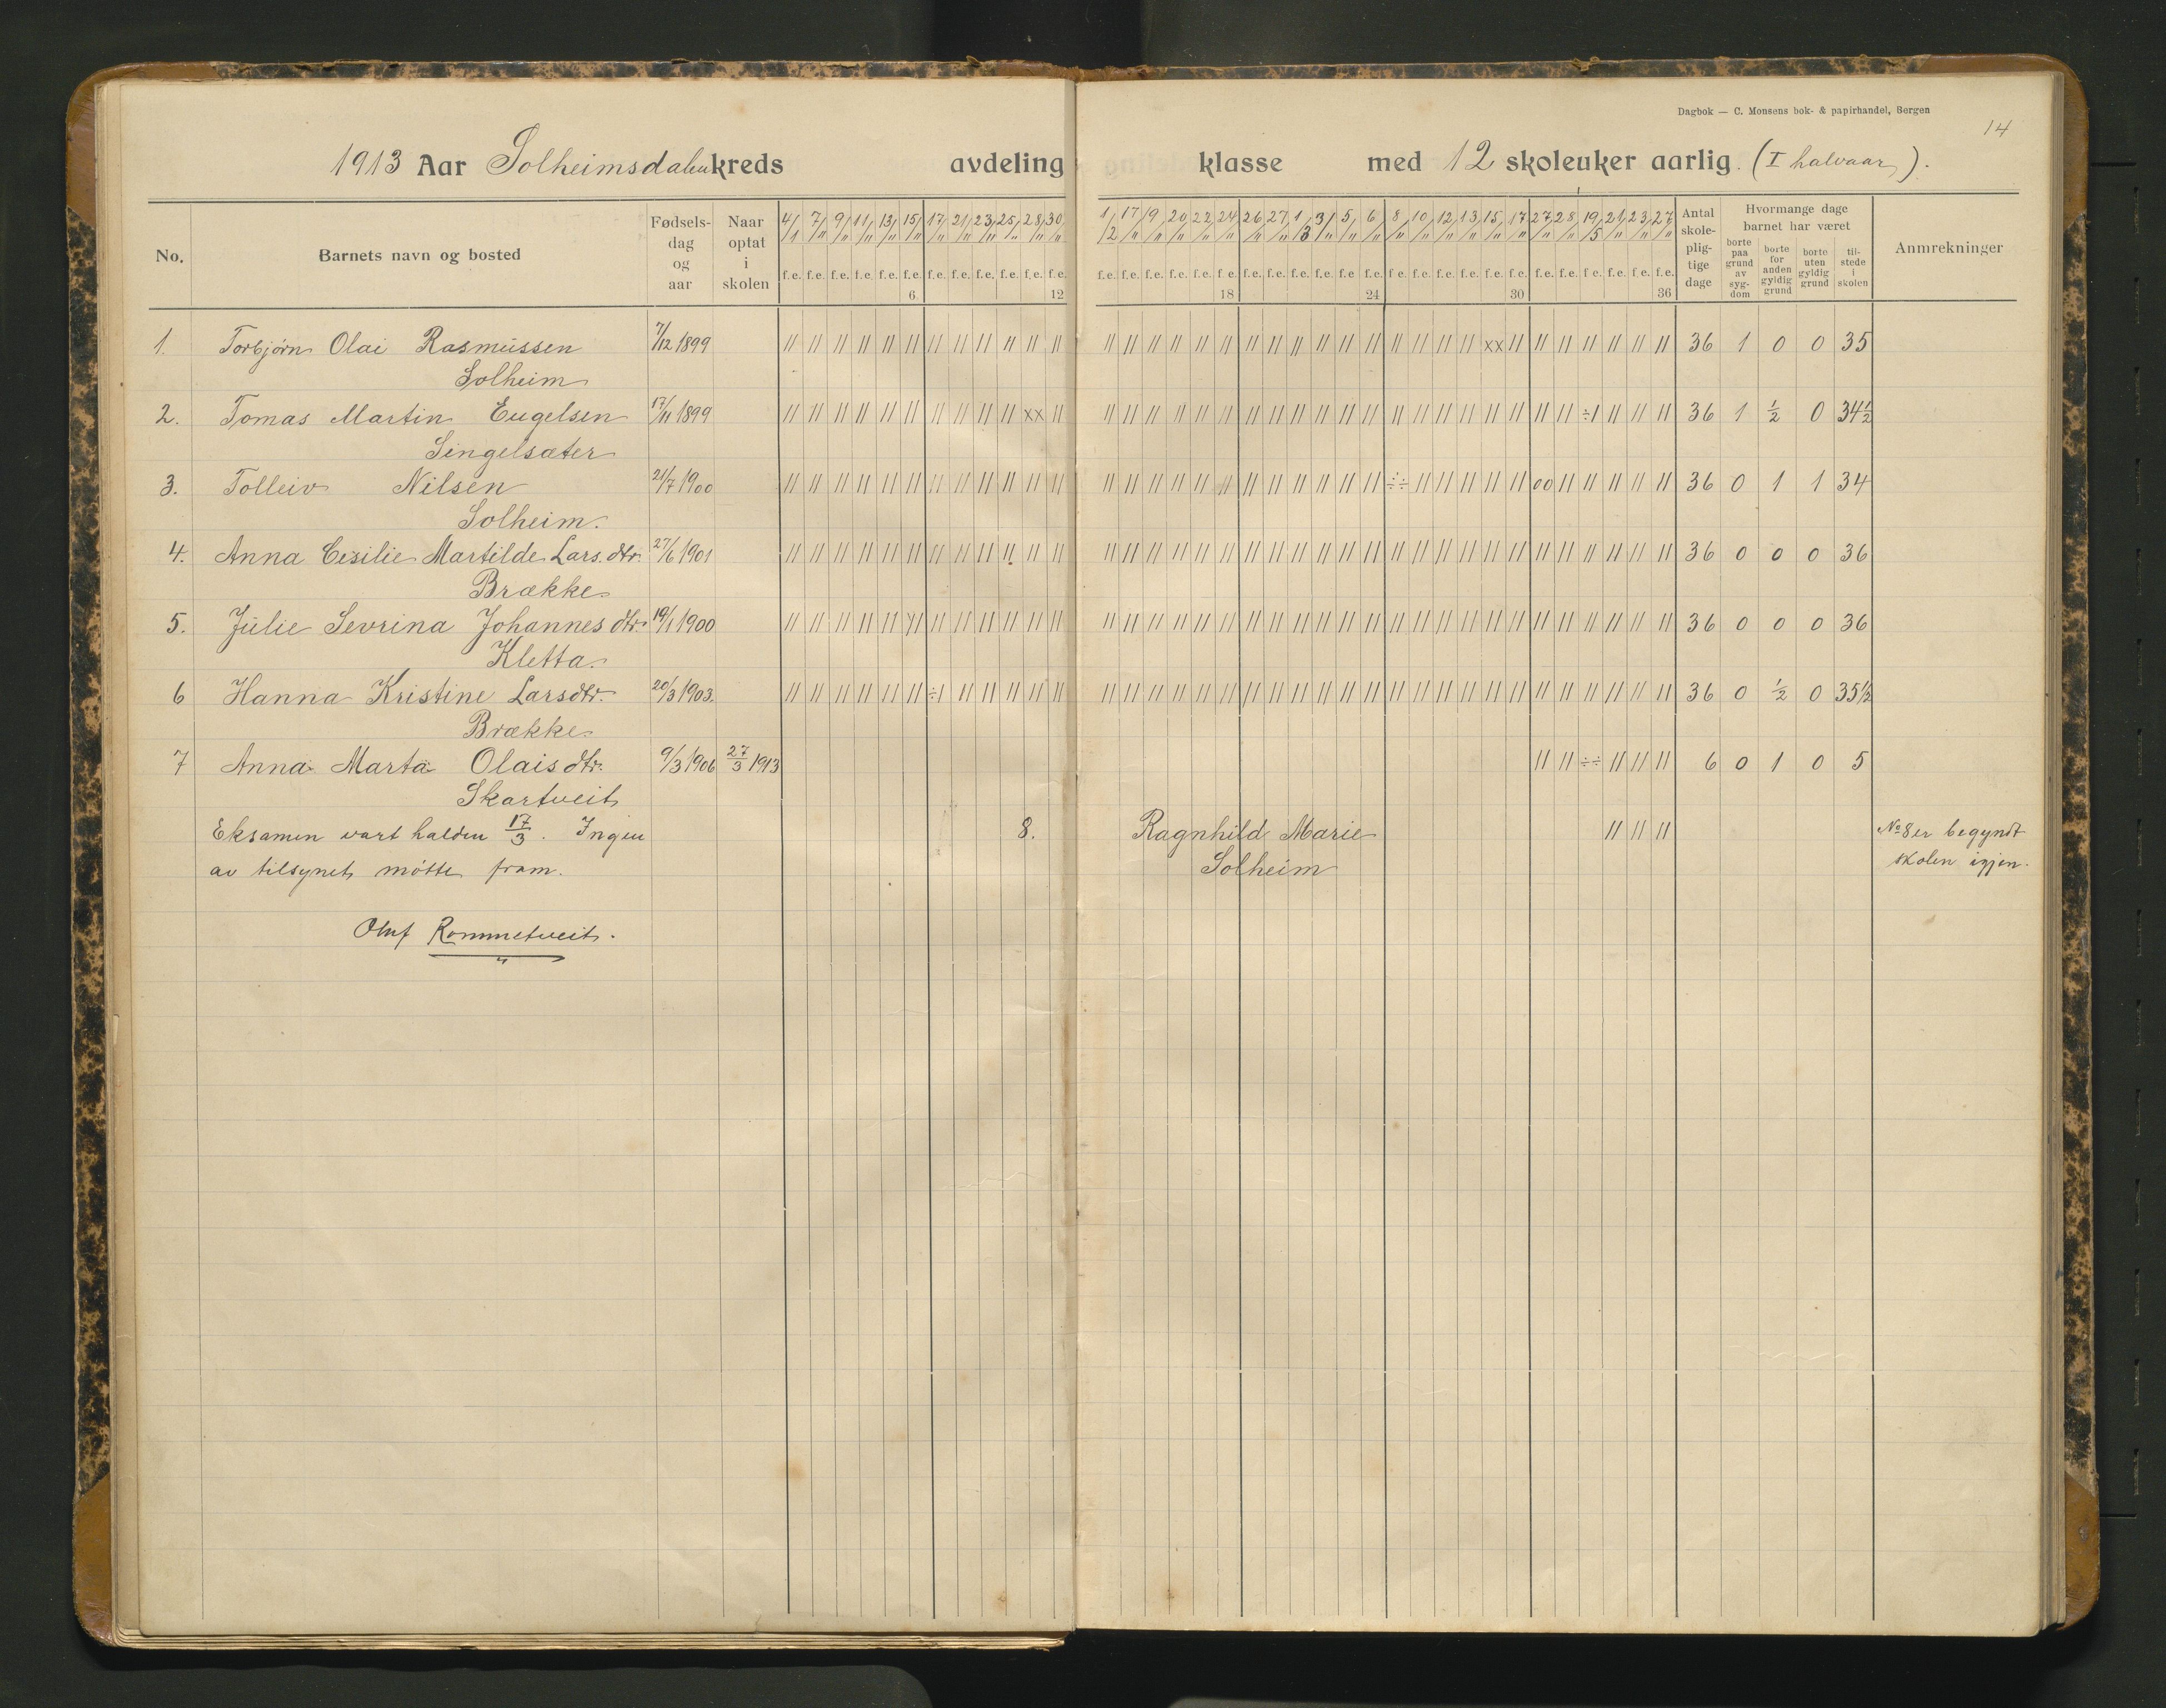 Dagbok — C. Monsens bok- & papirhandel, Bergen
14
1913 Aar Solheimsdalen kreds avdeling klasse med 12 skoleuker aarlig. (I halvaar).
No. Barnets navn og bosted Fødsels-dag og aar Naar optat i skolen 4/1 7/" 9/" 11/" 13/" 15/" 17/" 21/" 23/" 25/" 28/" 30/" 1/2 17/" 19/" 20/" 22/" 24/" 26/" 27/" 1/3 3/" 5/" 6/" 8/" 10/" 12/" 13/" 15/" 17/" 27/" 28/" 19/5 21/" 23/" 27/" Antal skole-plig-tige dage Hvormange dage barnet har været Anmrekninger
borte paa grund av syg-dom borte for anden gyldig grund borte uten gyldig grund til-stede i skolen
f.e. f.e. f.e. f.e. f.e. f.e. f.e. f.e. f.e. f.e. f.e. f.e. f.e. f.e. f.e. f.e. f.e. f.e. f.e. f.e. f.e. f.e. f.e. f.e. f.e. f.e. f.e. f.e. f.e. f.e. f.e. f.e. f.e. f.e. f.e. f.e.
6 12 18 24 30 36
1. Torbjørn Olai Rasmussen 7/12 1899 // // // // // // // // // // // // // // // // // // // // // // // // // // // // xx // // // // // // // 36 1 0 0 35
Solheim
2. Tomas Martin Engelsen 17/11 1899 // // // // // // // // // // xx // // // // // // // // // // // // // // // // // // // // // ÷/ // // // 36 1 1/2 0 34 1/2
Singelsæter
3. Tolleiv Nilsen 21/7 1900 // // // // // // // // // // // // // // // // // // // // // // // // ÷÷ // // // // // 00 // // // // // 36 0 1 1 34
Solheim.
4. Anna Cesilie Martilde Lars.dtr. 27/6 1901 // // // // // // // // // // // // // // // // // // // // // // // // // // // // // // // // // // // // 36 0 0 0 36
Brække
5. Julie Sevrina Johannes dtr. 19/1 1900 // // // // // // // // // // // // // // // // // // // // // // // // // // // // // // // // // // // // 36 0 0 0 36
Kletta.
6 Hanna Kristine Larsdtr. 20/3 1903. // // // // // // ÷/ // // // // // // // // // // // // // // // // // // // // // // // // // // // // // 36 0 1/2 0 35 1/2
Brække
7 Anna Marta Olais dtr. 9/3 1906 27/3 1913 // // ÷÷ // // // 6 0 1 0 5
Skartveit
Eksamen vart halden 17/3. Ingen 8. Ragnhild Marie // // // No 8 er begyndt
av tilsynet møtte fram. Solheim skolen igjen.
Oluf Rommetveit.